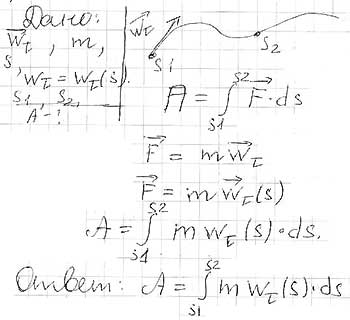 Дано:
W⃗τ, m,
s, Wτ = Wτ(s).
s1, s2,
A - !
W⃗τ
s1
s2
A = ∫_{s1}^{s2} F⃗ · ds
F⃗ = m W⃗τ
F⃗ = m W⃗τ(s)
A = ∫_{s1}^{s2} m Wτ(s) · ds.
Ответ: A = ∫_{s1}^{s2} m Wτ(s) · ds